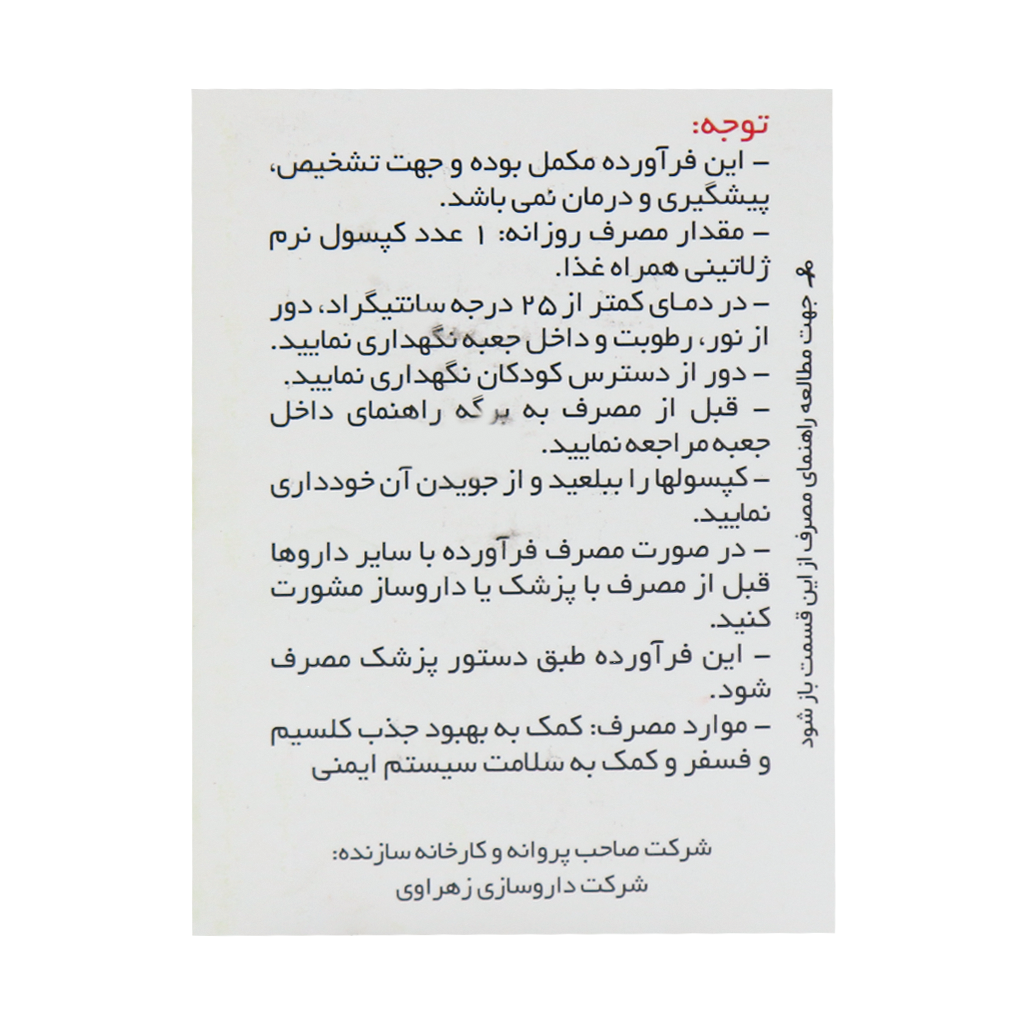 توجه:
– این فرآورده مکمل بوده و جهت تشخیص،
پیشگیری و درمان نمی باشد.
– مقدار مصرف روزانه: ۱ عدد کپسول نرم
ژلاتینی همراه غذا.
– در دمای کمتر از ۲۵ درجه سانتیگراد، دور
از نور، رطوبت و داخل جعبه نگهداری نمایید.
– دور از دسترس کودکان نگهداری نمایید.
– قبل از مصرف به برگه راهنمای داخل
جعبه مراجعه نمایید.
– کپسولها را ببلعید و از جویدن آن خودداری
نمایید.
– در صورت مصرف فرآورده با سایر داروها
قبل از مصرف با پزشک یا داروساز مشورت
کنید.
– این فرآورده طبق دستور پزشک مصرف
شود.
– موارد مصرف: کمک به بهبود جذب کلسیم
و فسفر و کمک به سلامت سیستم ایمنی
شرکت صاحب پروانه و کارخانه سازنده:
شرکت داروسازی زهراوی
جهت مطالعه راهنمای مصرف از این قسمت باز شود